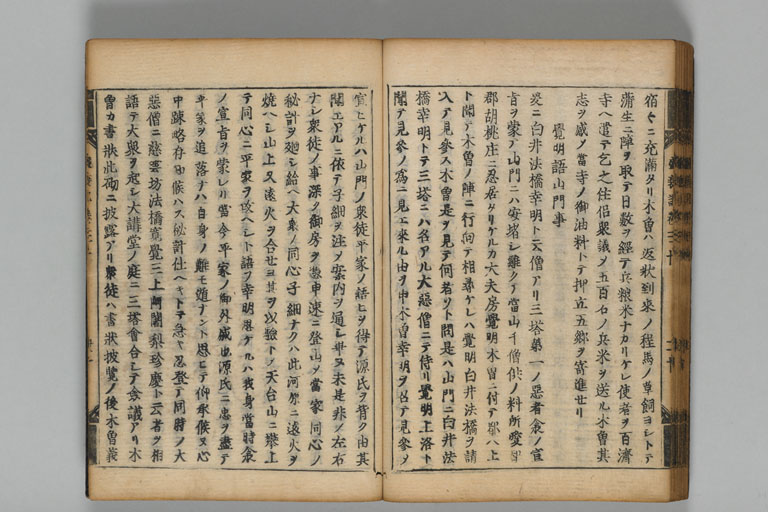 宿々ニ充満タリ木曽ハ返状到来ノ程馬ノ草飼ヨシトテ
蒲生ニ陣ヲ取テ日数ヲ経テ兵粮米ナカリケレ使者ヲ百済
寺ヘ遣テ乞之住侶衆議メ五百石ノ兵米ヲ送ル木曽其
志ヲ感メ当寺ノ御油料トテ押立五郷ヲ寄進セリ
覚明語山門事
爰ニ白井法橋幸明ト云僧アリ三塔第一ノ悪者余ノ宣
旨ヲ蒙テ山門ニハ安堵シ難クテ当山千僧供ノ料所愛智
郡胡桃庄ニ忍居タリケルカ大夫房覚明木曽ニ付テ郡ハ上
ト聞テ木曽ノ陣ニ行向テ相尋ケレハ覚明白井法橋ヲ請
入テ見参ス木曽是ヲ見テ何者ソト問是ハ山門ニ白井法
橋幸明トテ三塔ニハ名アル大悪僧ニテ侍リ覚明上洛ト
聞テ見参ノ為ニ見エ来ル由ヲ申木曽幸明ヲ召テ見参メ
宣ヒケルハ山門ノ衆徒平家ノ語ヒヲ得テ源氏ヲ背ク由其
聞エアルニ依テ子細ヲ注メ案内ヲ通シ畢ヌ未是非ノ左右
ナシ衆徒ノ事深ク御房ヲ憑申速ニ登山メ当家同心ノ
秘計ヲ廻シ給ヘ大衆ノ同心子細ナクハ此河原ニ遠火ヲ
焼ヘシ山上又遠火ヲ合セヨ其ヲ以験トメ天台山ニ攀上
テ同心ニ平家ヲ攻ヘシト語フ幸明答ケルハ我身当時余
ノ宣旨ヲ蒙レリ当今平家ノ御外戚也源氏ニ忠ヲ尽テ
平家ヲ追落ナハ自身ノ難モ遁ナント思ヒテ仰承候ヌ心
中疎略存セス候ハス秘計仕ヘキトテ急キ忍登テ同時ノ大
悪僧ニ慈雲坊法橋寛覚三上阿闍梨珍慶ト云者ヲ相
語テ大衆ヲ起シ大講堂ノ庭ニ三塔會合シテ僉議アリ木
曽カ書状此砌ニ披露アリ衆徒ハ書状披覧ノ後木曽義